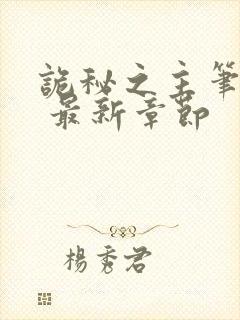 詭秘之主筆
最新章節
楊秀君